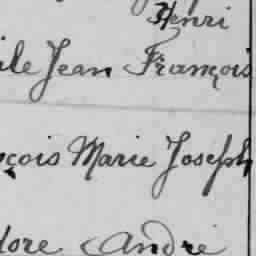 Henri
ile Jean François
nçois Marie Joseph
dore André